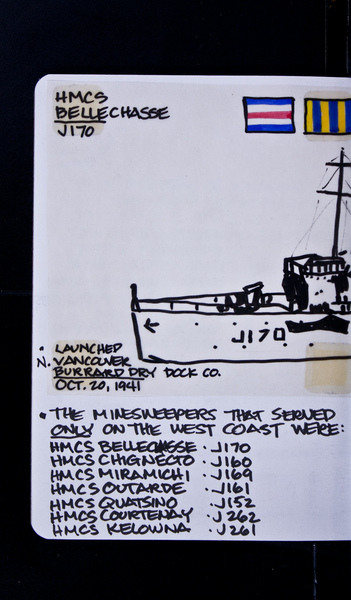 HMCS
BELLECHASSE
J170
J170
• LAUNCHED
N. VANCOUVER
BURRARD DRY DOCK CO.
OCT. 20, 1941
• THE MINESWEEPERS THAT SERVED
ONLY ON THE WEST COAST WERE:
HMCS BELLECHASSE · J170
HMCS CHIGNECTO · J160
HMCS MIRAMICHI · J169
HMCS OUTARDE · J161
HMCS QUATSINO · J152
HMCS COURTENAY · J262
HMCS KELOWNA · J261